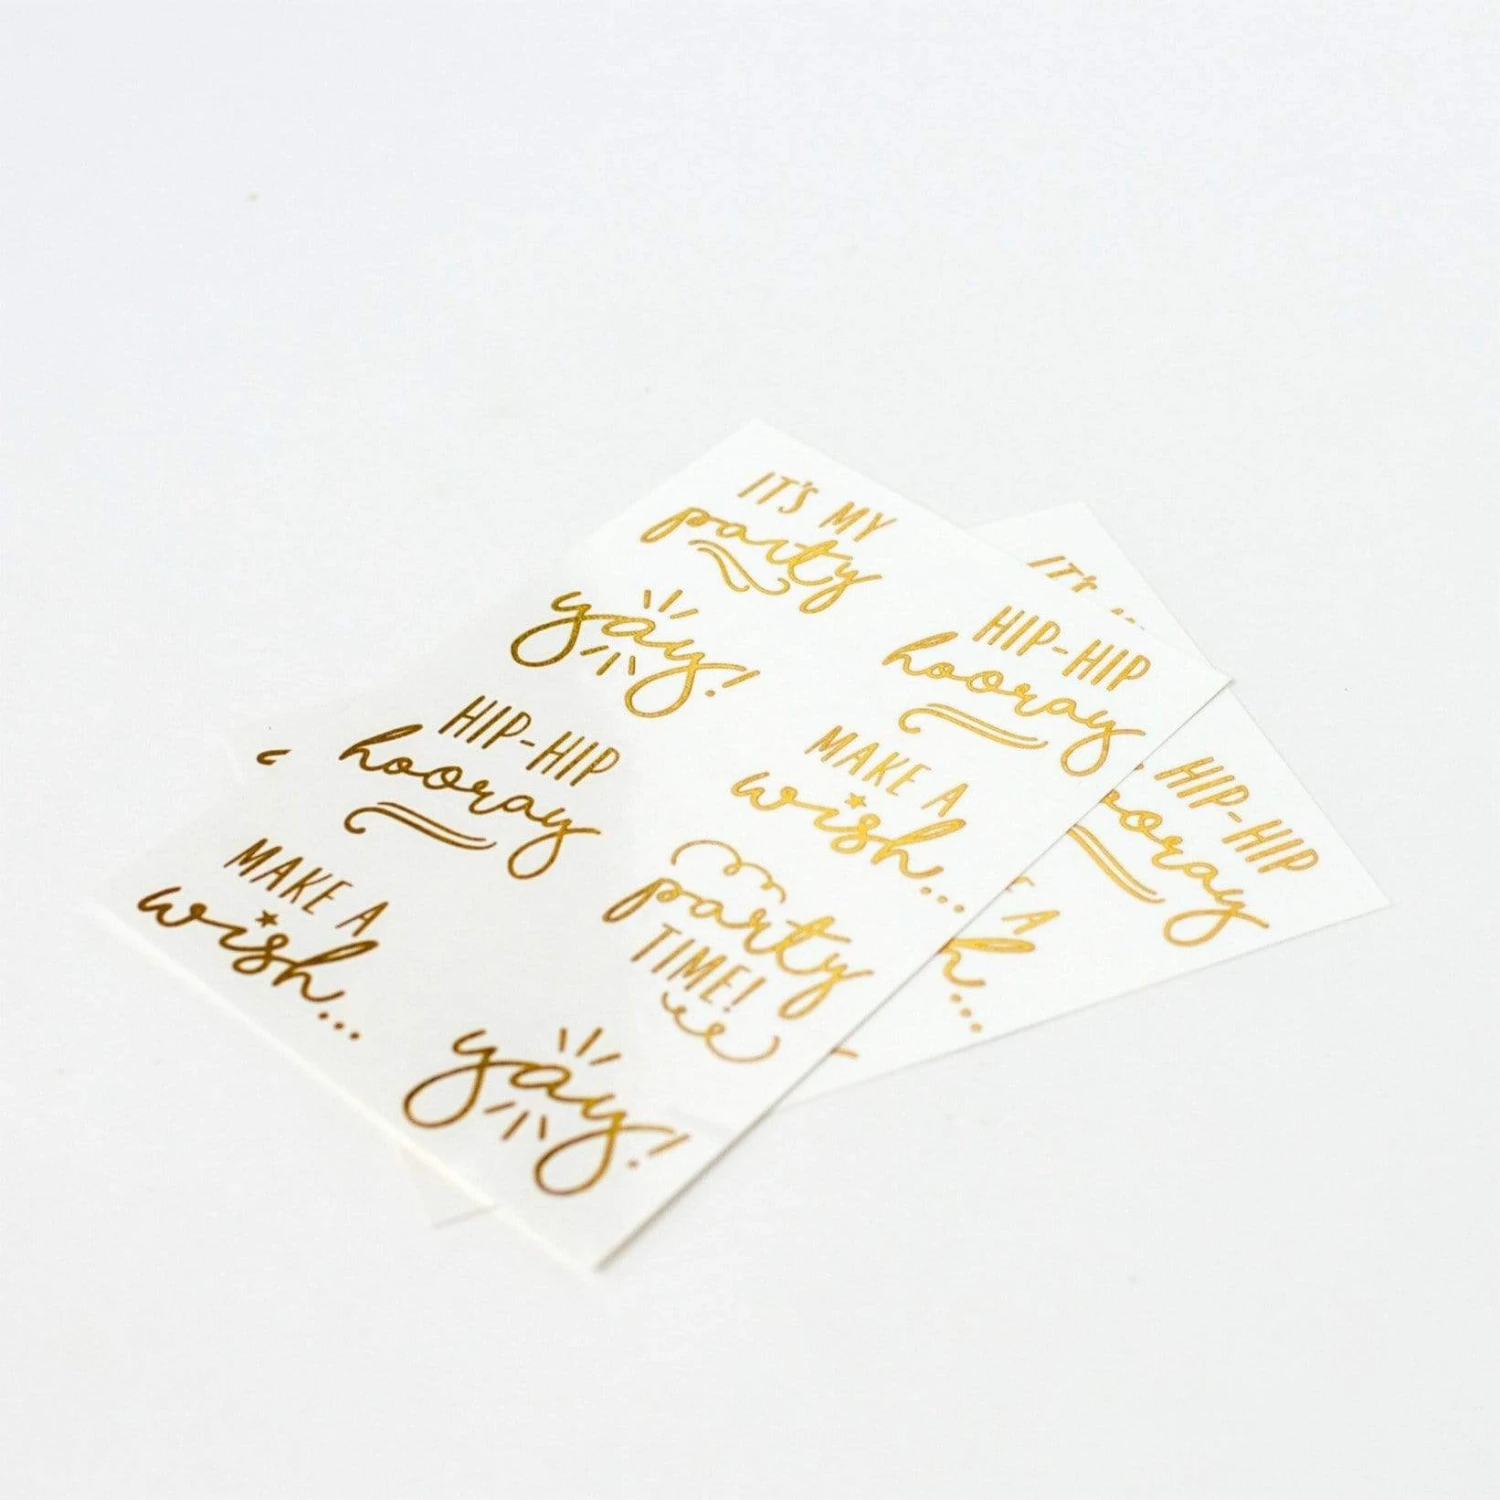 IT'S MY
party
yay!
HIP-HIP
hooray
HIP-HIP
hooray
MAKE A
wish...
MAKE A
wish...
party
TIME!
yay!
IT'S
HIP-HIP
hooray
A